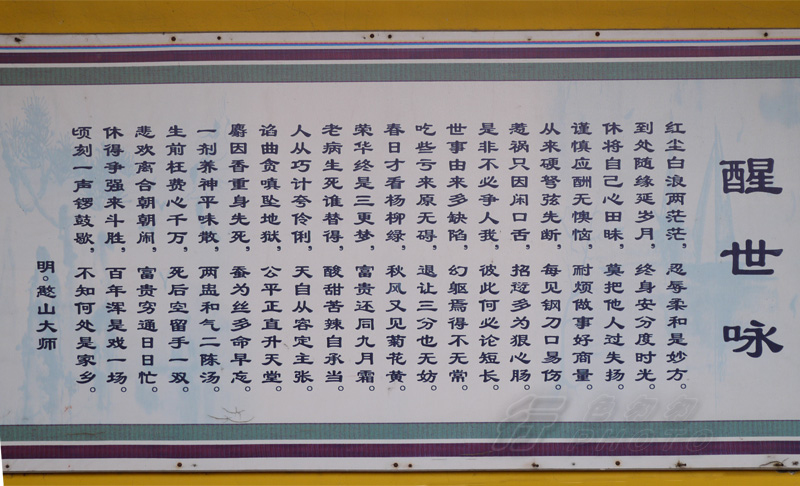 醒世咏
红尘白浪两茫茫，忍辱柔和是妙方。
到处随缘延岁月，终身安分度时光。
休将自己心田昧，莫把他人过失扬。
谨慎应酬无懊恼，耐烦做事好商量。
从来硬弩弦先断，每见钢刀口易伤。
惹祸只因闲口舌，招愆多为狠心肠。
是非不必争人我，彼此何必论短长。
世事由来多缺陷，幻躯焉得不无常。
吃些亏来原无碍，退让三分也无妨。
春日才看杨柳绿，秋风又见菊花黄。
荣华终是三更梦，富贵还同九月霜。
老病生死谁替得，酸甜苦辣自承当。
人从巧计夸伶俐，天自从容定主张。
谄曲贪嗔坠地狱，公平正直升天堂。
麝因香重身先死，蚕为丝多命早亡。
一剂养神平味散，两盅和气二陈汤。
生前枉费心千万，死后空留手一双。
悲欢离合朝朝闹，富贵穷通日日忙。
休得争强来斗胜，百年浑是戏一场。
顷刻一声锣鼓歇，不知何处是家乡。
明。憨山大师
PHOTO